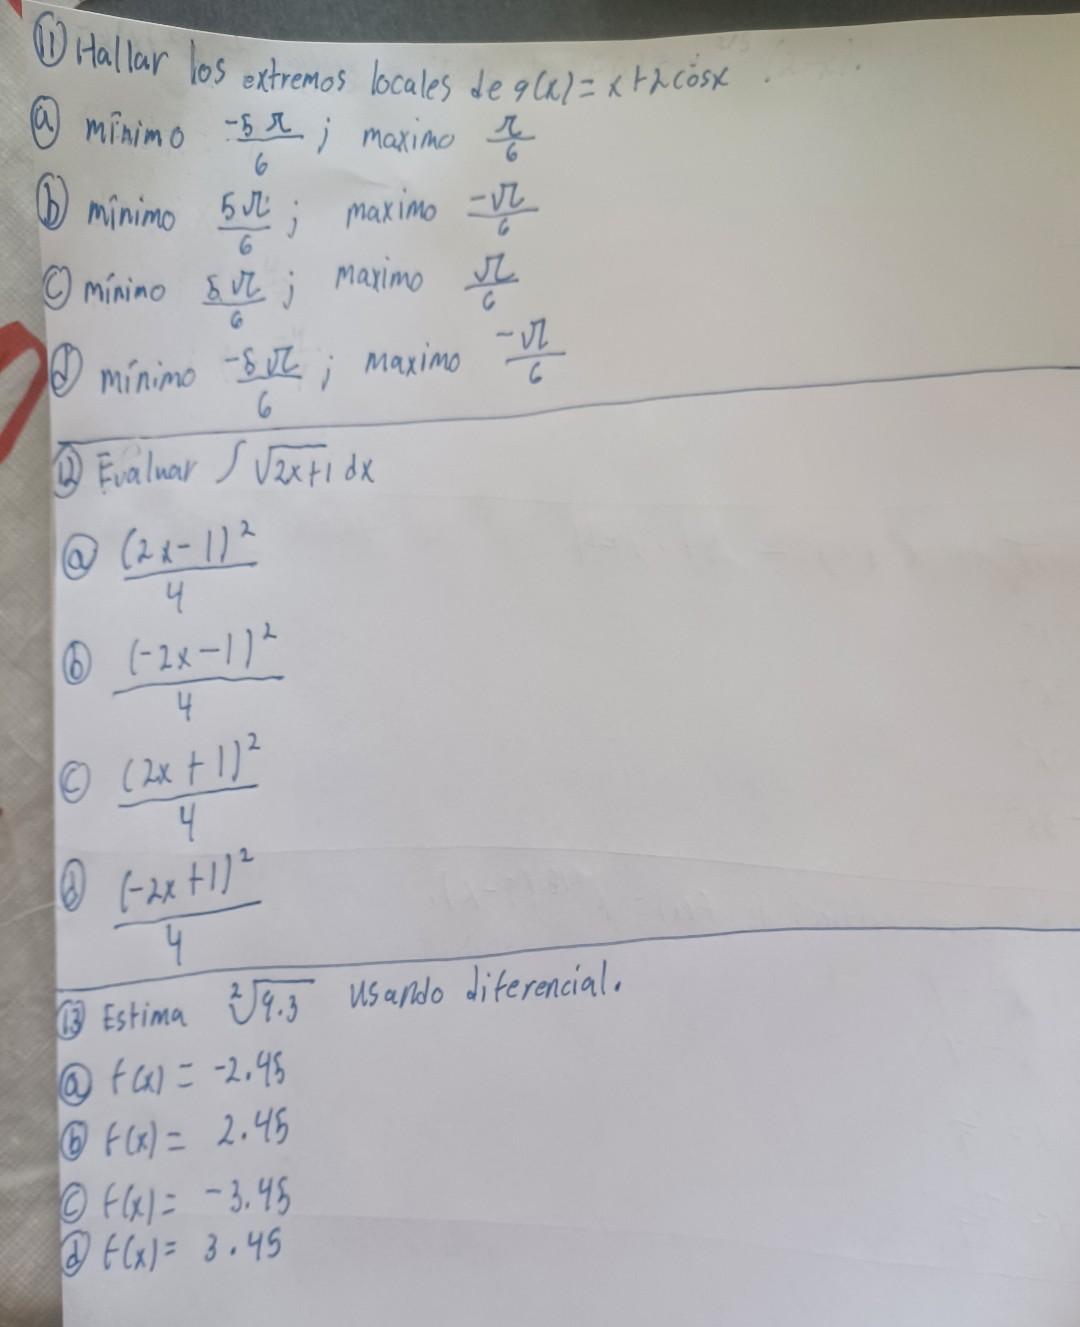 11 Hallar los extremos locales de g(x) = x + 2 cos x.
a mínimo -5π/6 ; maximo π/6
b mínimo 5π/6 ; maximo -π/6
c mínimo 5π/6 ; maximo π/6
d mínimo -5π/6 ; maximo -π/6
12 Evaluar ∫ √(2x+1) dx
a (2x-1)²/4
b (-2x-1)²/4
c (2x+1)²/4
d (-2x+1)²/4
13 Estima ²√9.3 usando diferencial.
a f(x) = -2.45
b f(x) = 2.45
c f(x) = -3.45
d f(x) = 3.45